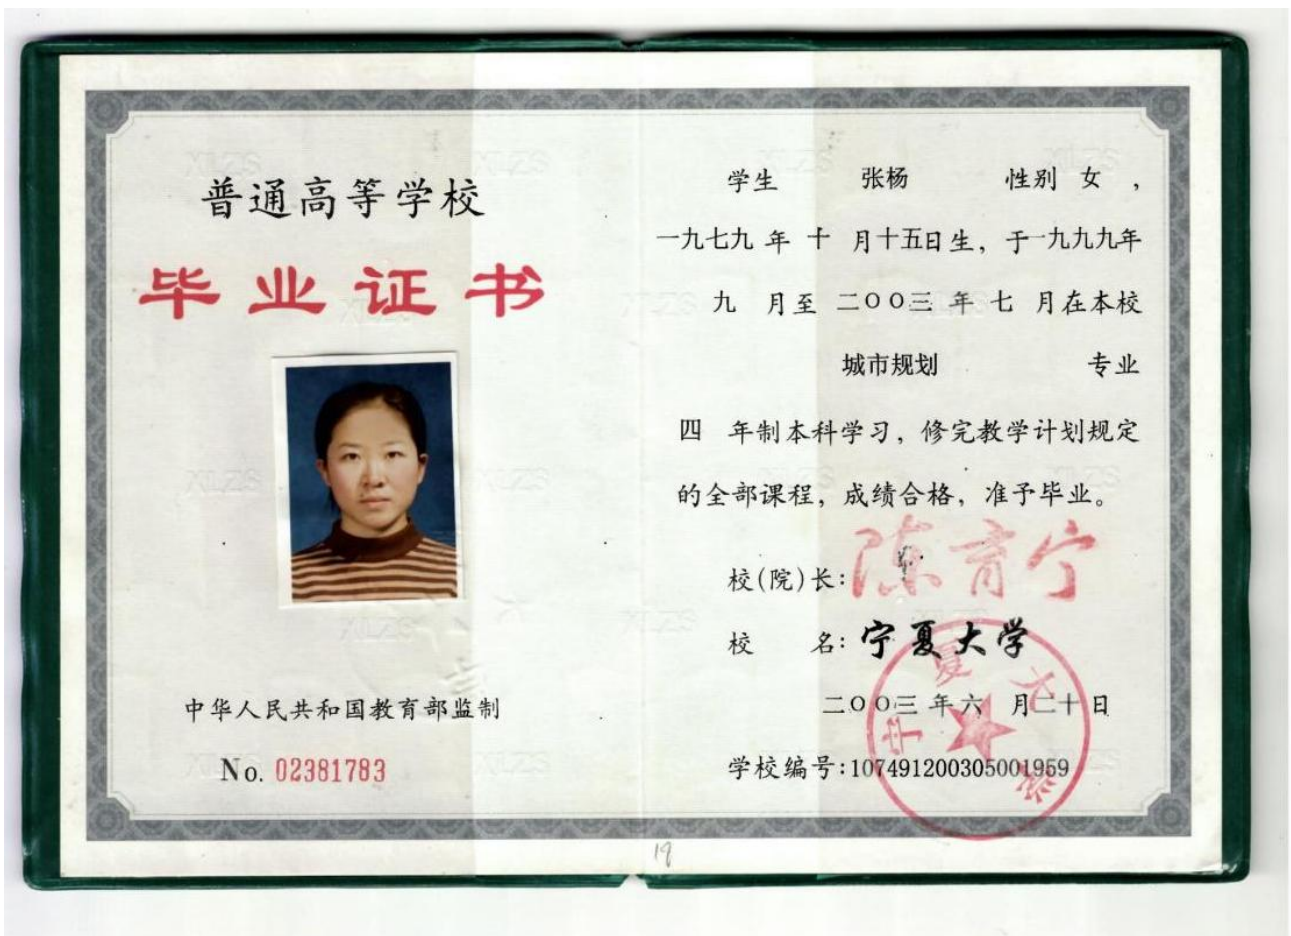 普通高等学校
毕业证书
中华人民共和国教育部监制
No. 02381783
学生 张杨 性别 女 ,
一九七九 年 十 月十五日生, 于一九九九年
九 月至 二〇〇三 年 七 月在本校
城市规划 专业
四 年制本科学习, 修完教学计划规定
的全部课程, 成绩合格, 准予毕业。
校(院)长: 陈育宁
校 名: 宁夏大学
二〇〇三 年 六 月二十日
学校编号:107491200305001959
宁夏大学
19
XLZS